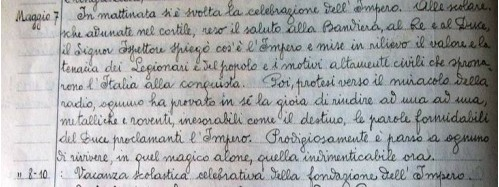 Maggio 7 In mattinata si è svolta la celebrazione dell'Impero. Alle scolare,
che adunate nel cortile, reso il saluto alla Bandiera, al Re e al Duce,
il Signor Ispettore spiegò cos'è l'Impero e mise in rilievo il valore e la
tenacia dei Legionari e del popolo e i motivi altamente civili che sprona-
rono l'Italia alla conquista. Poi, protesi verso il miracolo della
radio, ognuno ha provato in sè la gioia di riudire ad una ad una,
metalliche e roventi, inesorabili come il destino, le parole formidabili
del Duce proclamanti l'Impero. Prodigiosamente è parso a ognuno
di rivivere, in quel magico alone, quella indimenticabile ora.
" 8-10. : Vacanza scolastica celebrativa della fondazione dell'Impero.